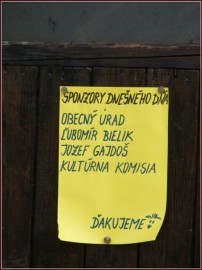 SPONZORY DNEŠNÉHO DŇA
OBECNÝ ÚRAD
ĽUBOMÍR BIELIK
JOZEF GAJDOŠ
KULTÚRNA KOMISIA
ĎAKUJEME!!